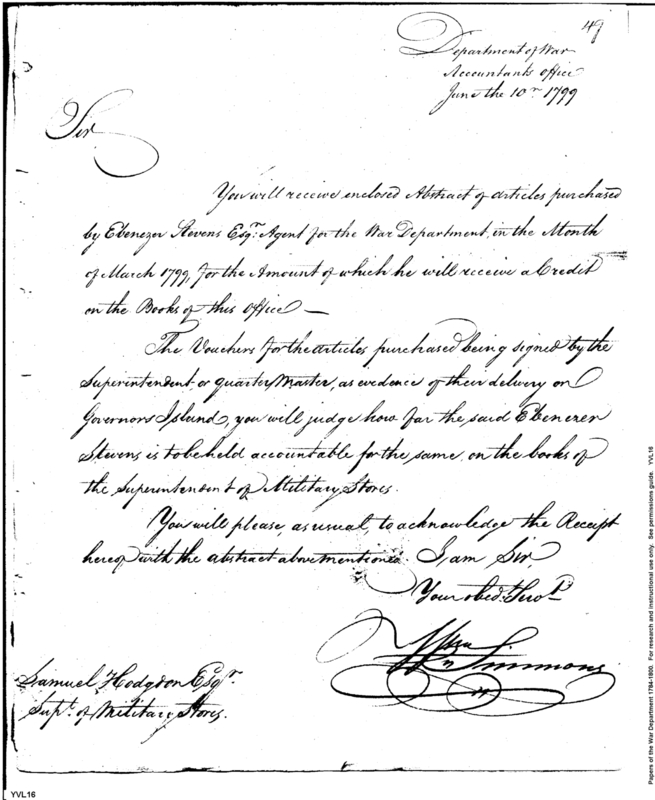 49
Department of War
Accountants office
June the 10th 1799
Sir
You will receive enclosed Abstract of articles purchased
by Ebenezer Stevens Esqr. Agent for the War Department, in the Month
of March 1799, for the Amount of which he will receive a Credit
on the Books of this office —
The Vouchers for the articles purchased being signed by the
Superintendent or quarter Master, as evidence of their delivery on
Governors Island, you will judge how far the said Ebenezer
Stevens is to be held accountable for the same, on the books of
the Superintendent of Military Stores.
You will please, as usual, to acknowledge the Receipt
hereof with the abstract above mentioned. I, am Sir,
Your obed. Servt.
Wm Simmons
Samuel Hodgdon Esqr.
Supt. of Military Stores.
YVL16
Papers of the War Department 1784-1800. For research and instructional use only. See permissions guide. YVL16